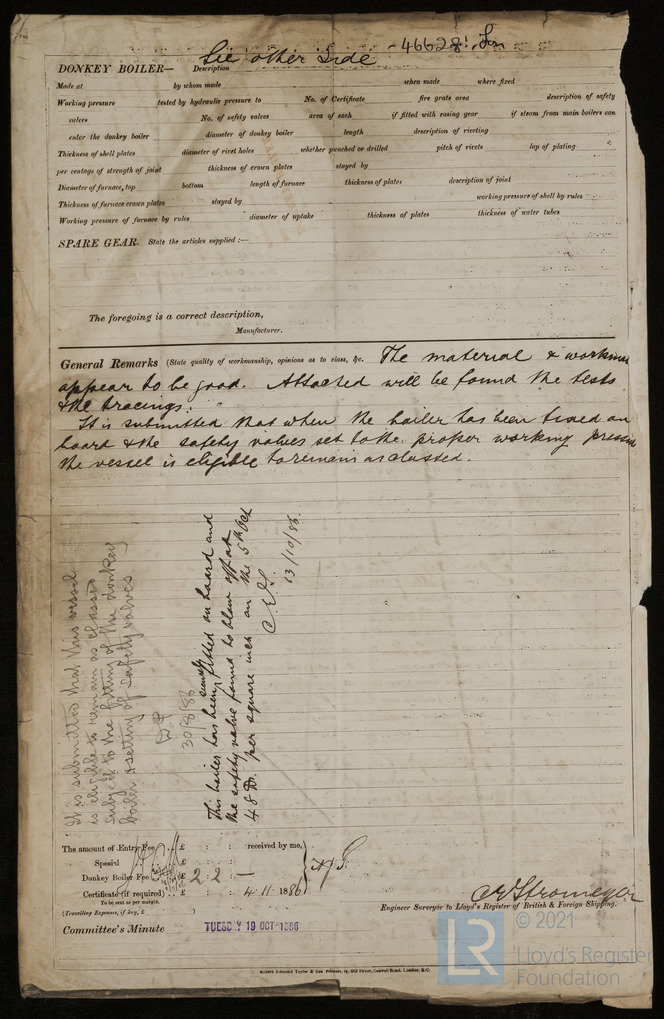 See other Side - 46628 Lon
DONKEY BOILER— Description
Made at by whom made when made where fixed
Working pressure tested by hydraulic pressure to No. of Certificate fire grate area description of safety
valves No. of safety valves area of each if fitted with easing gear if steam from main boilers can
enter the donkey boiler diameter of donkey boiler length description of riveting
Thickness of shell plates diameter of rivet holes whether punched or drilled pitch of rivets lap of plating
per centage of strength of joint thickness of crown plates stayed by
Diameter of furnace, top bottom length of furnace thickness of plates description of joint
Thickness of furnace crown plates stayed by working pressure of shell by rules
Working pressure of furnace by rules diameter of uptake thickness of plates thickness of water tubes
SPARE GEAR. State the articles supplied :—
The foregoing is a correct description,
Manufacturer.
General Remarks (State quality of workmanship, opinions as to class, &c. The material & workman
appear to be good. Attached will be found the tests
& the tracings.
It is submitted that when the boiler has been fixed on
board & the safety valves set to the proper working pressu
the vessel is eligible to remain as classed.
It is submitted that this vessel
is eligible to remain as classed
subject to the fitting of the donkey
boiler & setting of safety valves
30/8/86
This boiler has been securely fitted on board and
the safety valve found to blow off at
48 lb. per square inch on the 5th Oct
C.E.S.
13/10/86.
The amount of Entry Fee £ : : received by me,
Special £ : :
Donkey Boiler Fee £ 2 : 2 : —
Certificate (if required) £ : : 4.11.1886
To be sent as per margin.
(Travelling Expenses, if any, £
C E Stromeyer
Engineer Surveyor to Lloyd's Register of British & Foreign Shipping.
Committee's Minute TUESDAY 19 OCT 1886
© 2021
LR
Lloyd's Register
Foundation
Robert Edmund Taylor & Son Printers, 19, Old Street, Goswell Road, London, E.C.